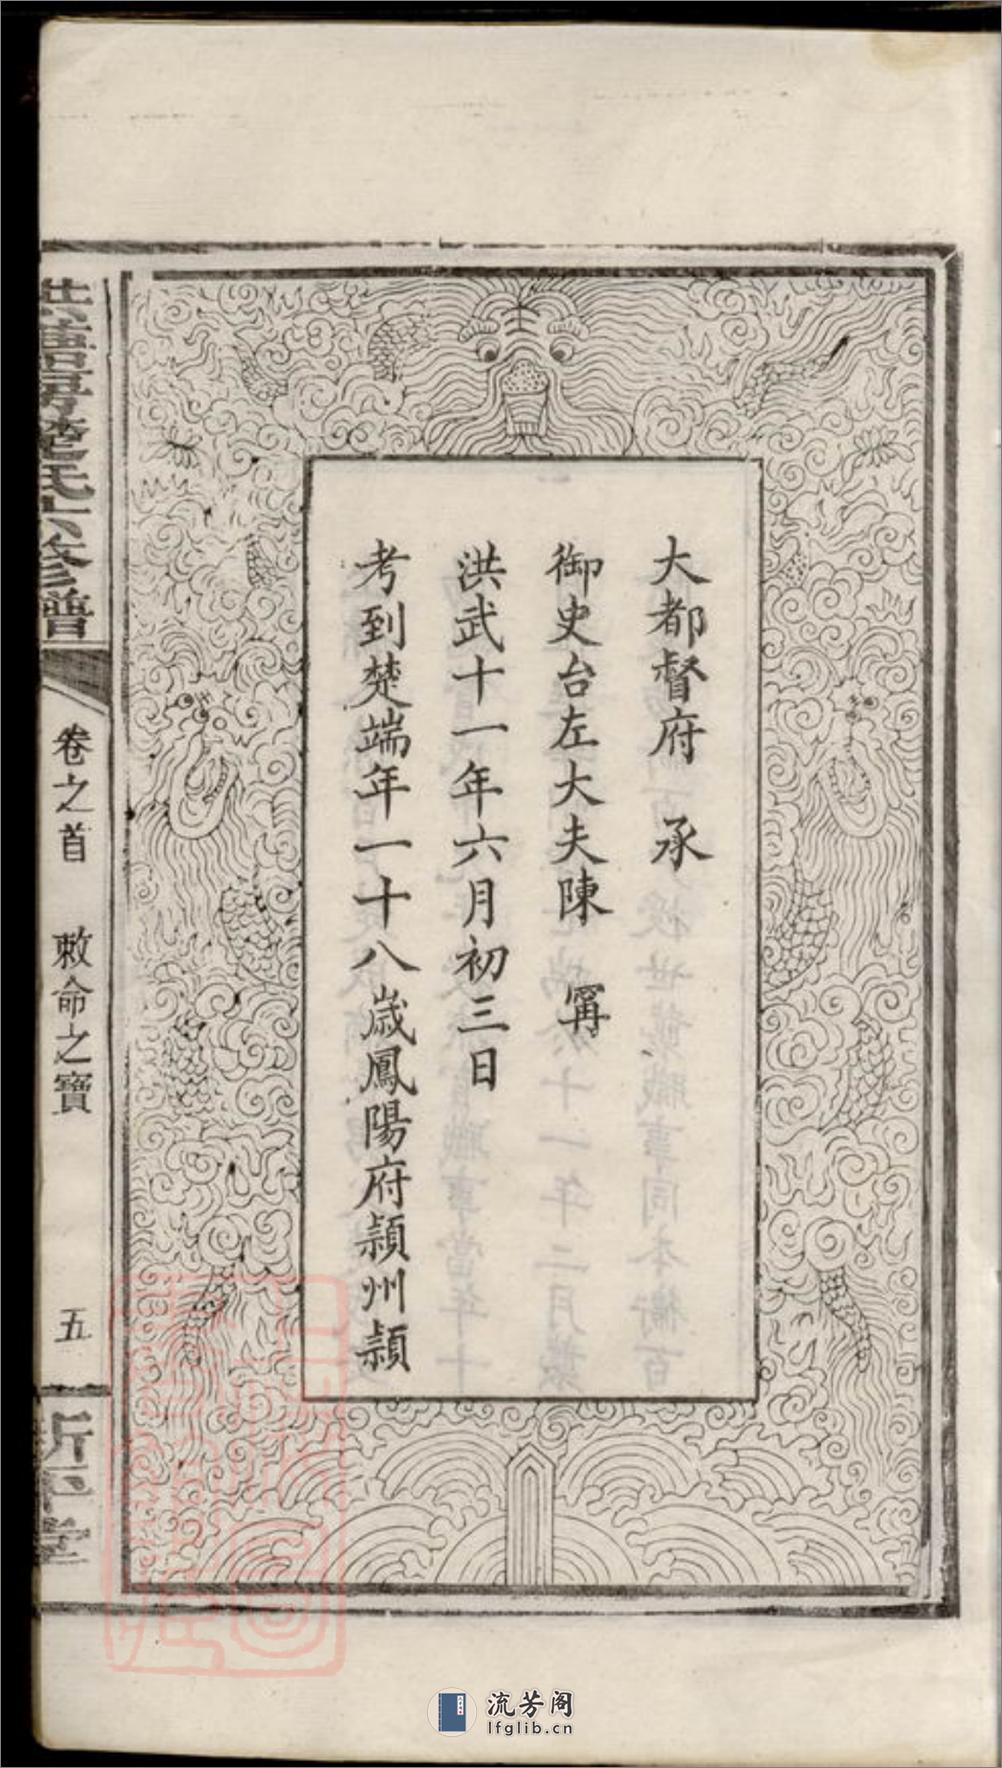 大都督府　承
御史台左大夫陳　寗
洪武十一年六月初三日
考到楚端年一十八歲鳳陽府潁州潁
楚氏六修譜
卷之首　敕命之寶
五
流芳阁
lfglib.cn